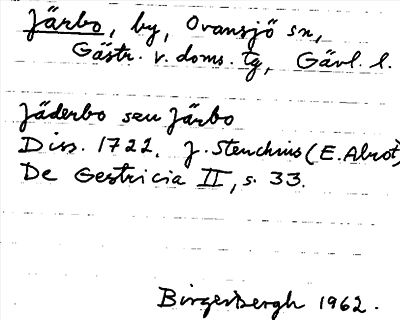 Järbo, by, Ovansjö sn,
Gästr. v. doms. tg, Gävl. l.
Jäderbo seu Järbo
Diss. 1722. J. Stenchius (E. Alrot)
De Gestricia II, s. 33.
Birger Bergh 1962.